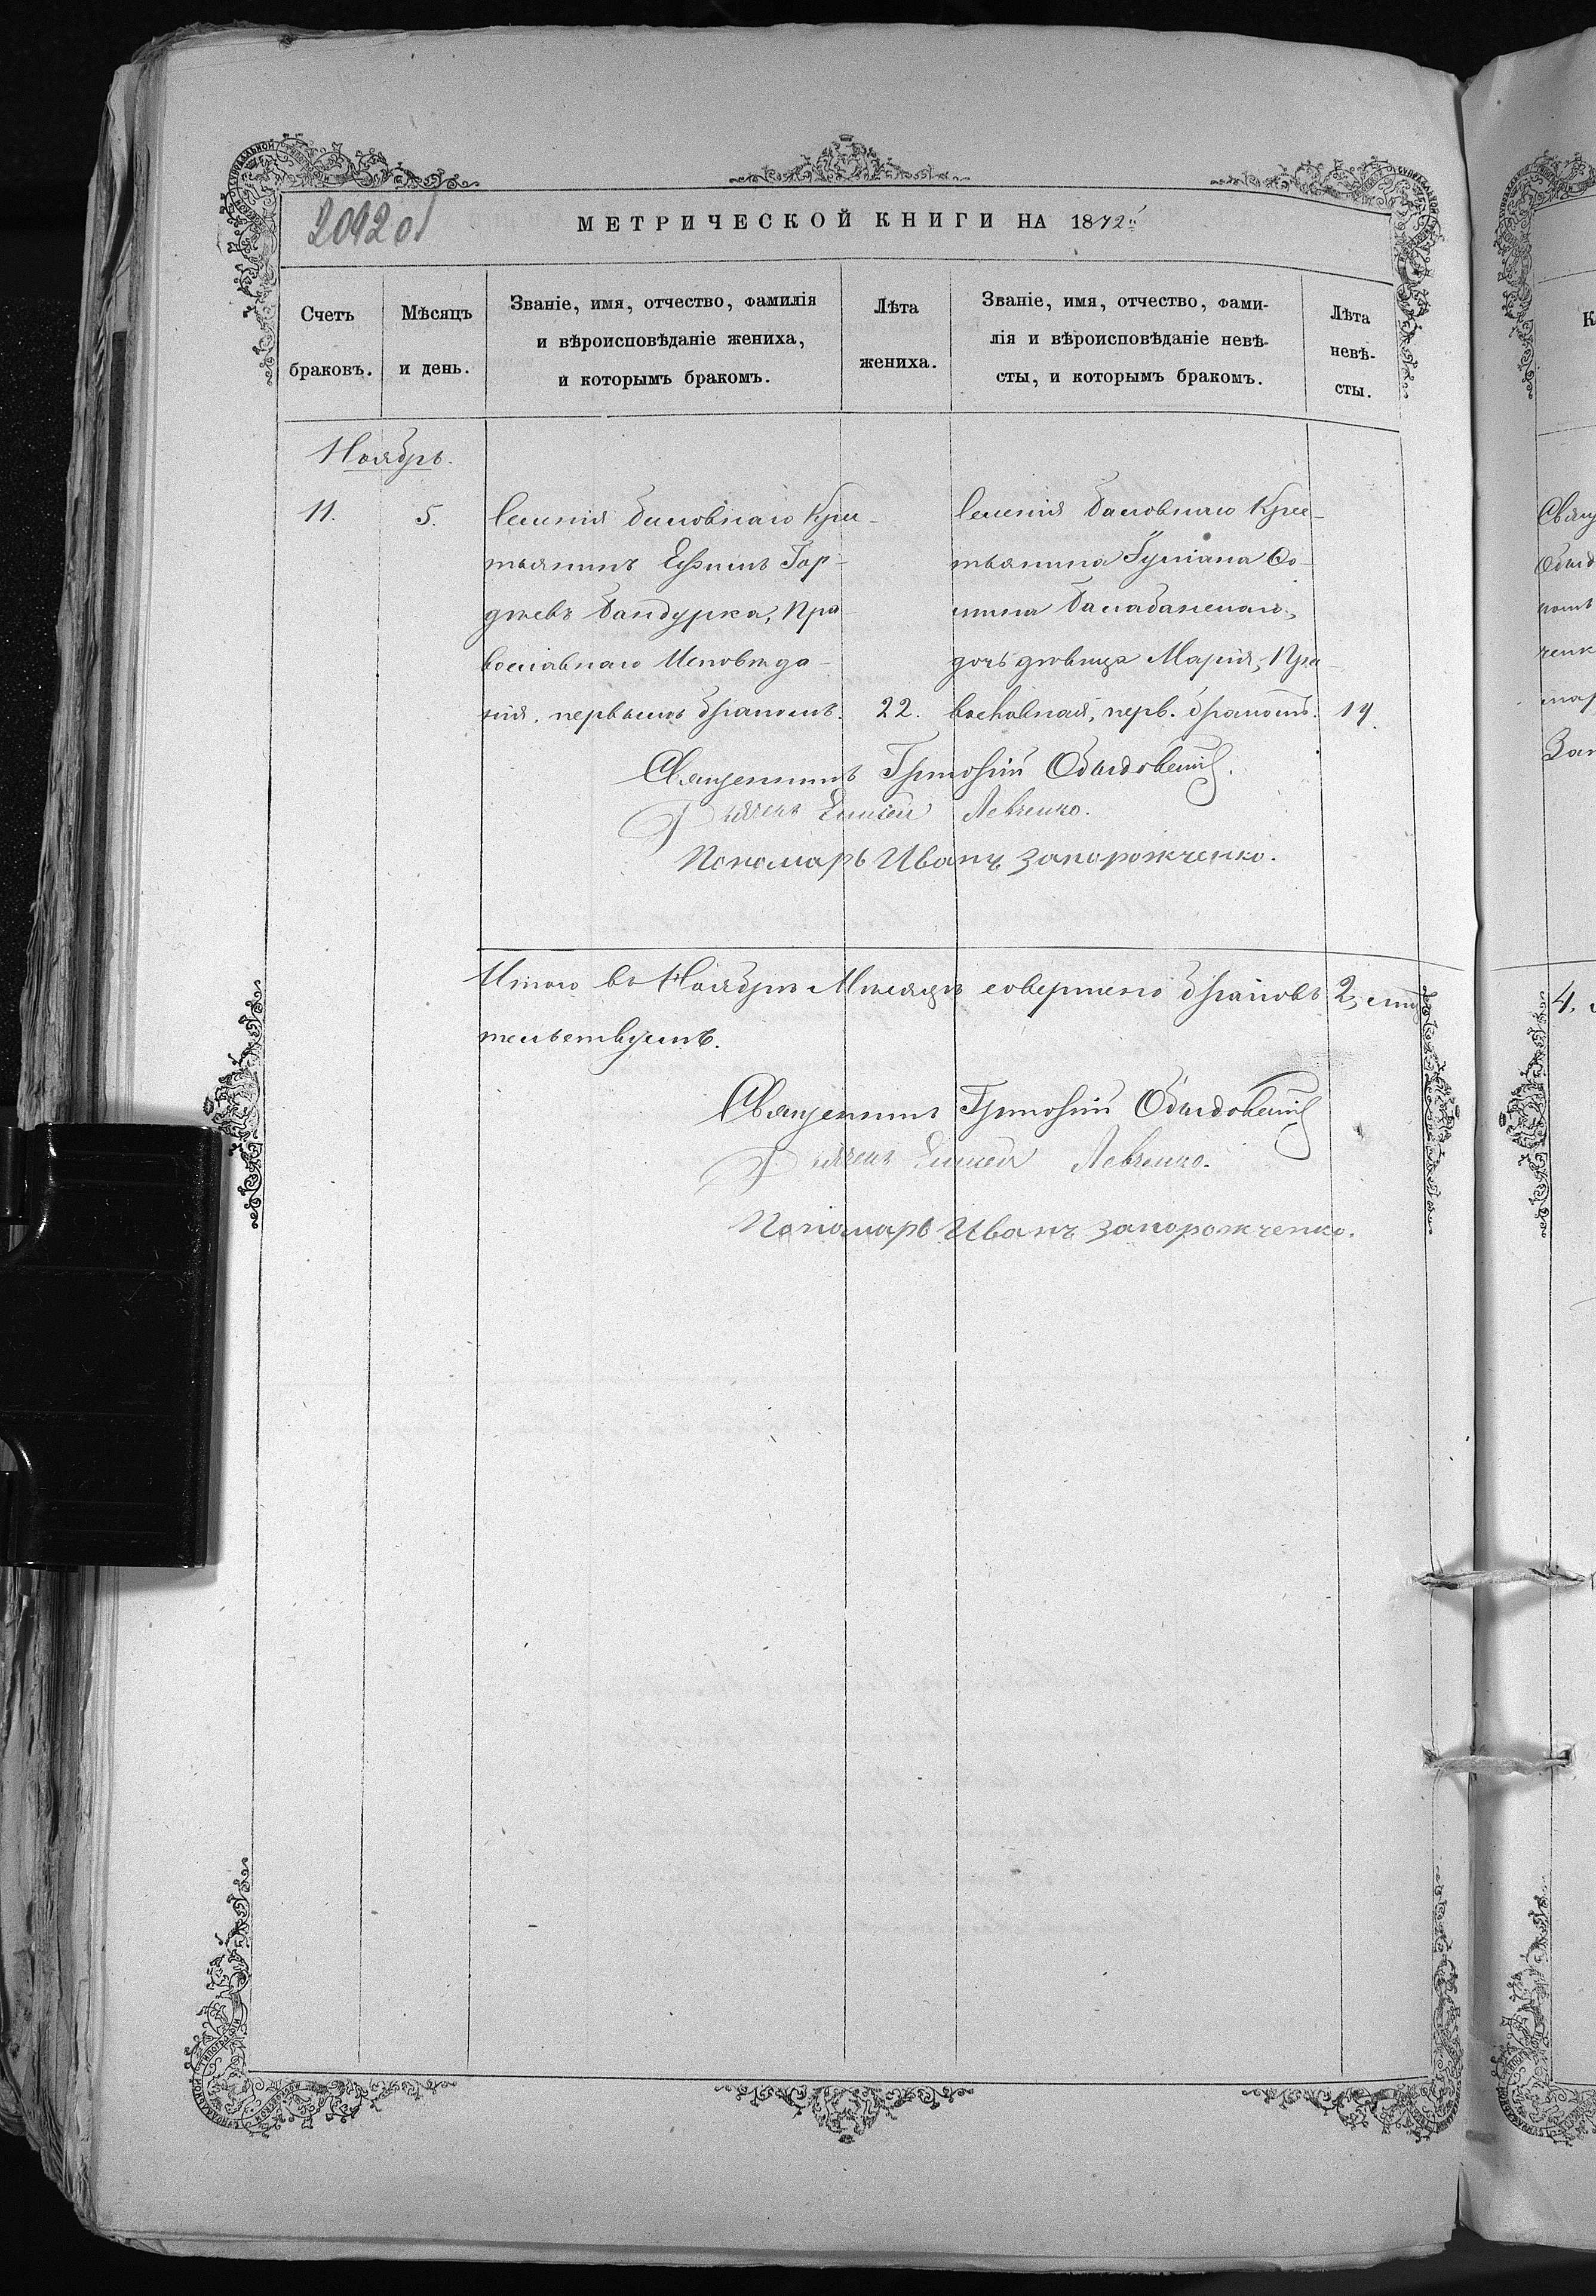 2042 об
МЕТРИЧЕСКОЙ КНИГИ НА 1872й
Счетъ браковъ.
Мѣсяцъ и день.
Званіе, имя, отчество, фамилія
и вѣроисповѣданіе жениха,
и которымъ бракомъ.
Лѣта жениха.
Званіе, имя, отчество, фами-
лія и вѣроисповѣданіе невѣ-
сты, и которымъ бракомъ.
Лѣта невѣ-
сты.
Ноябрь.
11.
5.
Селенія Баловнаго Крес-
тьянинъ Ефимъ Гор-
дѣевъ Бандурка, Пра
вославнаго Исповѣда-
нія, первымъ бракомъ.
22.
Селенія Баловнаго Крес-
тьянина Гуліана Ѳо-
мина Балабанскаго,
дочь дѣвица Марія, Пра-
вославная, перв. бракомъ.
19.
Священникъ Григорій Обыдовскій.
Дьячекъ Елисей Левченко.
Пономарь Иванъ Запорожченко.
Итого въ Ноябрѣ Мѣсяцѣ совершено браковъ 2, сви
тельствуемъ.
Священникъ Григорій Обыдовскій
Дьячекъ Елисей Левченко.
Пономарь Иванъ Запорожченко.